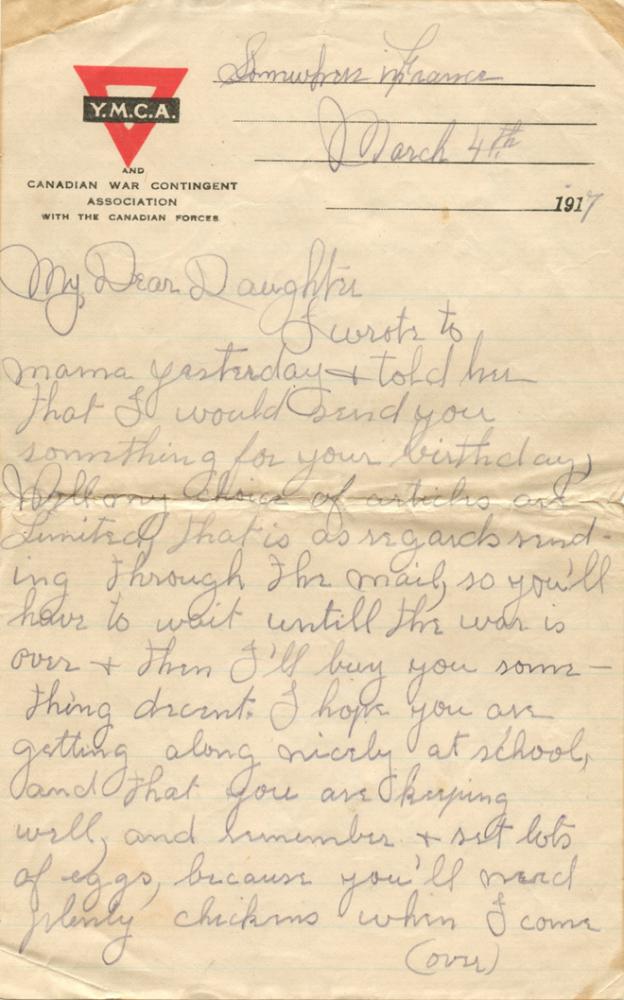 Somewhere in France
Y.M.C.A.
March 4th
AND
CANADIAN WAR CONTINGENT
ASSOCIATION
WITH THE CANADIAN FORCES
1917
My Dear Daughter
I wrote to
mama yesterday + told her
that I would send you
something for your birthday,
Well my choice of articles are
Limited, that is as regards send-
ing through the mail, so you'll
have to wait untill the war is
over + then I'll buy you some-
thing decent. I hope you are
getting along nicely at school,
and that you are keeping
well, and remember + set lots
of eggs, because you'll need
plenty chickens when I come
(over)